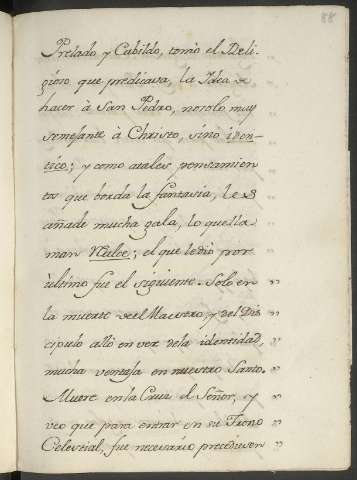 88
Prelado y Cabildo, tomò el Reli-
gioso que predicava, la Idea de
hacer à San Pedro, nosolo muy
semejante à Christo, sino iden-
tico; y como atales pensamien
tos que borda la fantasia, les
añade mucha gala, lo quella
man Vulce; el que ledio por
ùltimo fue el siguiente. Solo en
la muerte del Maestro, y del Dis
cipulo allò en vez dela identidad,
mucha ventaja en nuestro Santo.
Muere en la Cruz el Señor, y
veo que para entrar en su Trono
Celestial, fue necesario precediesen